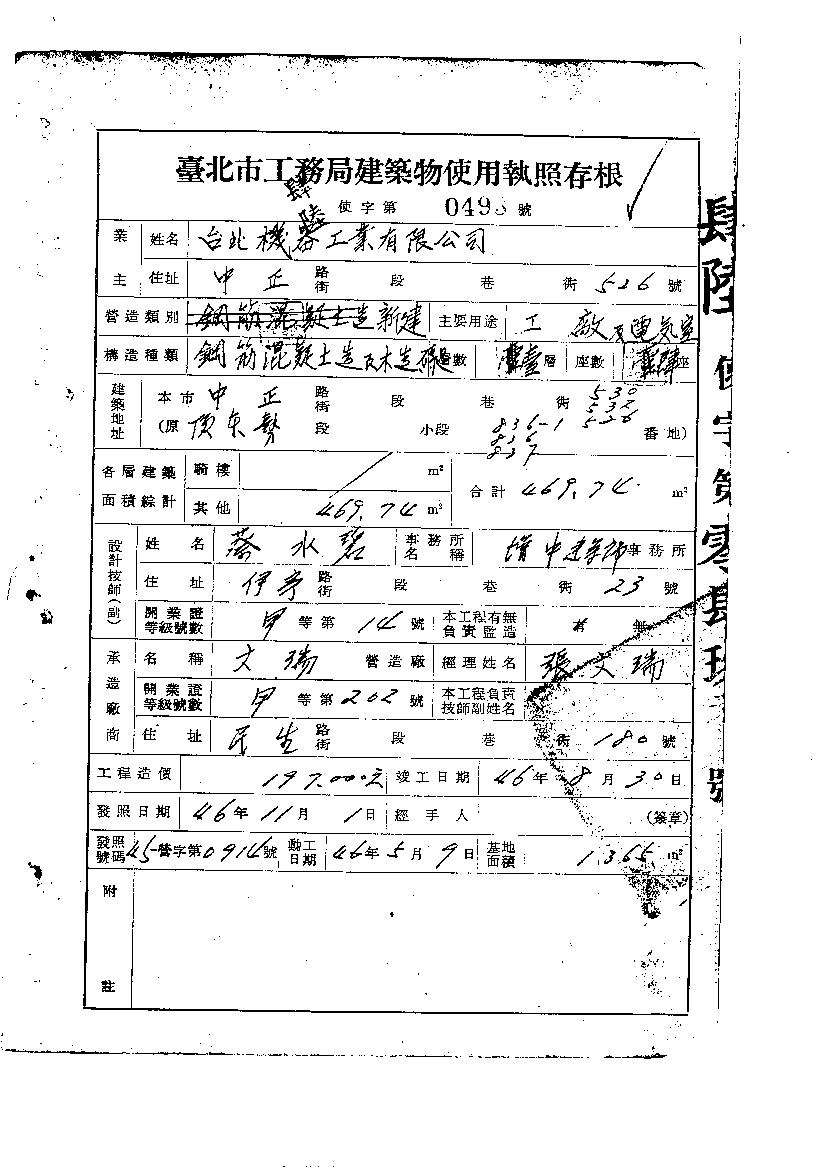 臺北市工務局建築物使用執照存根
肆陸 使字第 049 號
業主 姓名 台北機器工業有限公司
住址 中正 路街 段 巷 街 526 號
營造類別 鋼筋混凝土造新建 主要用途 工廠及電気室
構造種類 鋼筋混凝土造及木造 層數 壹層 座數 座
建築地址 本市 中正 路街 段 巷 街 530 532 526
(原 頂东勢 段 小段 836-1 836 837 番地)
各層建築面積綜計 騎樓 m² 合計 469.74 m²
其他 469.74 m²
設計技師(副) 姓名 蔡水碧 事務所名稱 事務所
住址 伊寧 路街 段 巷 街 23 號
開業證等級號數 甲 等第 14 號 本工程有無負責監造 有 無
承造廠商 名稱 文瑞 營造廠 經理姓名 張文瑞
開業證等級號數 甲 等第 202 號 本工程負責技師副姓名
住址 民生 路街 段 巷 街 180 號
工程造價 197.000元 竣工日期 46年8月30日
發照日期 46年11月1日 經手人 (簽章)
發照號碼 45-營字第0914號 動工日期 46年5月9日 基地面積 1.365 m²
附註
肆陸使字第零肆玖 號